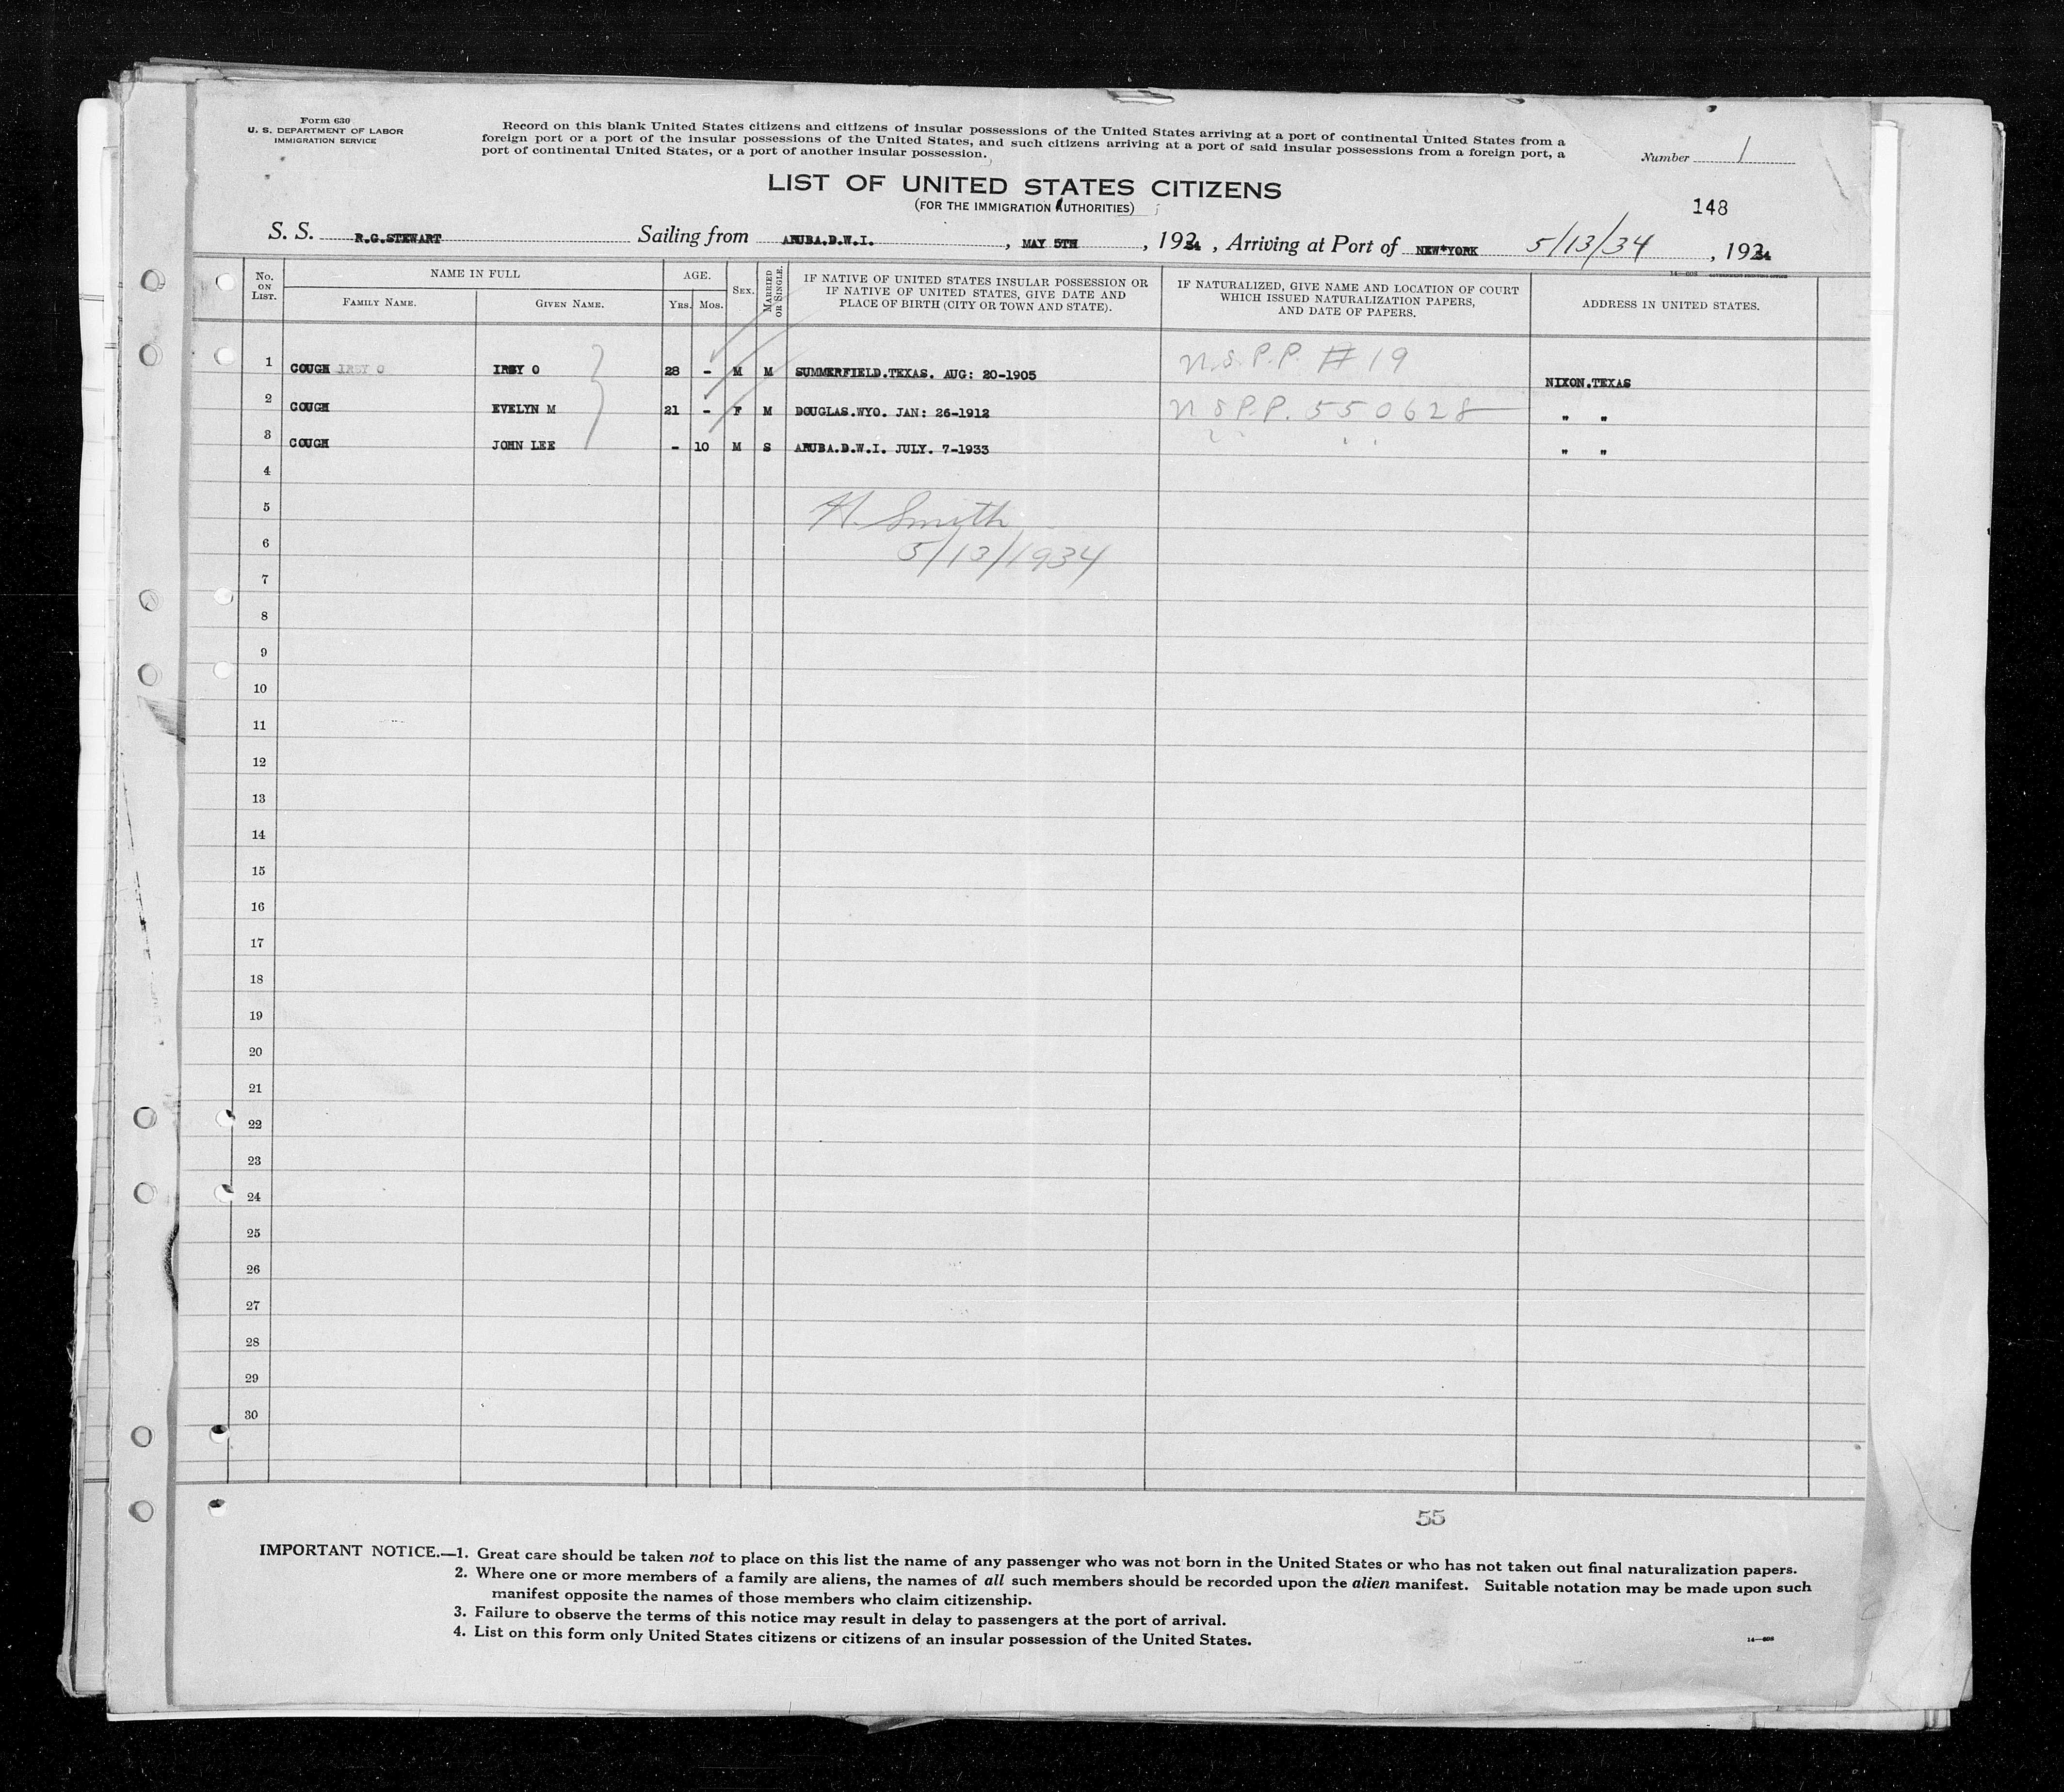 Form 630
U. S. DEPARTMENT OF LABOR
IMMIGRATION SERVICE
Record on this blank United States citizens and citizens of insular possessions of the United States arriving at a port of continental United States from a
foreign port or a port of the insular possessions of the United States, and such citizens arriving at a port of said insular possessions from a foreign port, a
port of continental United States, or a port of another insular possession.
Number 1
LIST OF UNITED STATES CITIZENS
(FOR THE IMMIGRATION AUTHORITIES)
148
S. S. R.G.STEWART Sailing from ARUBA.D.W.I. , MAY 5TH , 1934 , Arriving at Port of NEW*YORK 5/13/34 , 1934
14—608 GOVERNMENT PRINTING OFFICE
No. ON LIST.
NAME IN FULL
FAMILY NAME.
GIVEN NAME.
AGE.
YRS. MOS.
SEX.
MARRIED OR SINGLE.
IF NATIVE OF UNITED STATES INSULAR POSSESSION OR
IF NATIVE OF UNITED STATES, GIVE DATE AND
PLACE OF BIRTH (CITY OR TOWN AND STATE).
IF NATURALIZED, GIVE NAME AND LOCATION OF COURT
WHICH ISSUED NATURALIZATION PAPERS,
AND DATE OF PAPERS.
ADDRESS IN UNITED STATES.
1 COUGH IRBY O IRBY O 28 - M M SUMMERFIELD.TEXAS. AUG: 20-1905 N.S.P.P. #19 NIXON.TEXAS
2 COUGH EVELYN M 21 - F M DOUGLAS.WYO. JAN: 26-1912 N S P.P. 550628 " "
3 COUGH JOHN LEE - 10 M S ARUBA.D.W.I. JULY. 7-1933 " " " "
4
5 H. Smith
6 5/13/1934
7
8
9
10
11
12
13
14
15
16
17
18
19
20
21
22
23
24
25
26
27
28
29
30
55
IMPORTANT NOTICE.—1. Great care should be taken not to place on this list the name of any passenger who was not born in the United States or who has not taken out final naturalization papers.
2. Where one or more members of a family are aliens, the names of all such members should be recorded upon the alien manifest. Suitable notation may be made upon such
manifest opposite the names of those members who claim citizenship.
3. Failure to observe the terms of this notice may result in delay to passengers at the port of arrival.
4. List on this form only United States citizens or citizens of an insular possession of the United States.
14—608